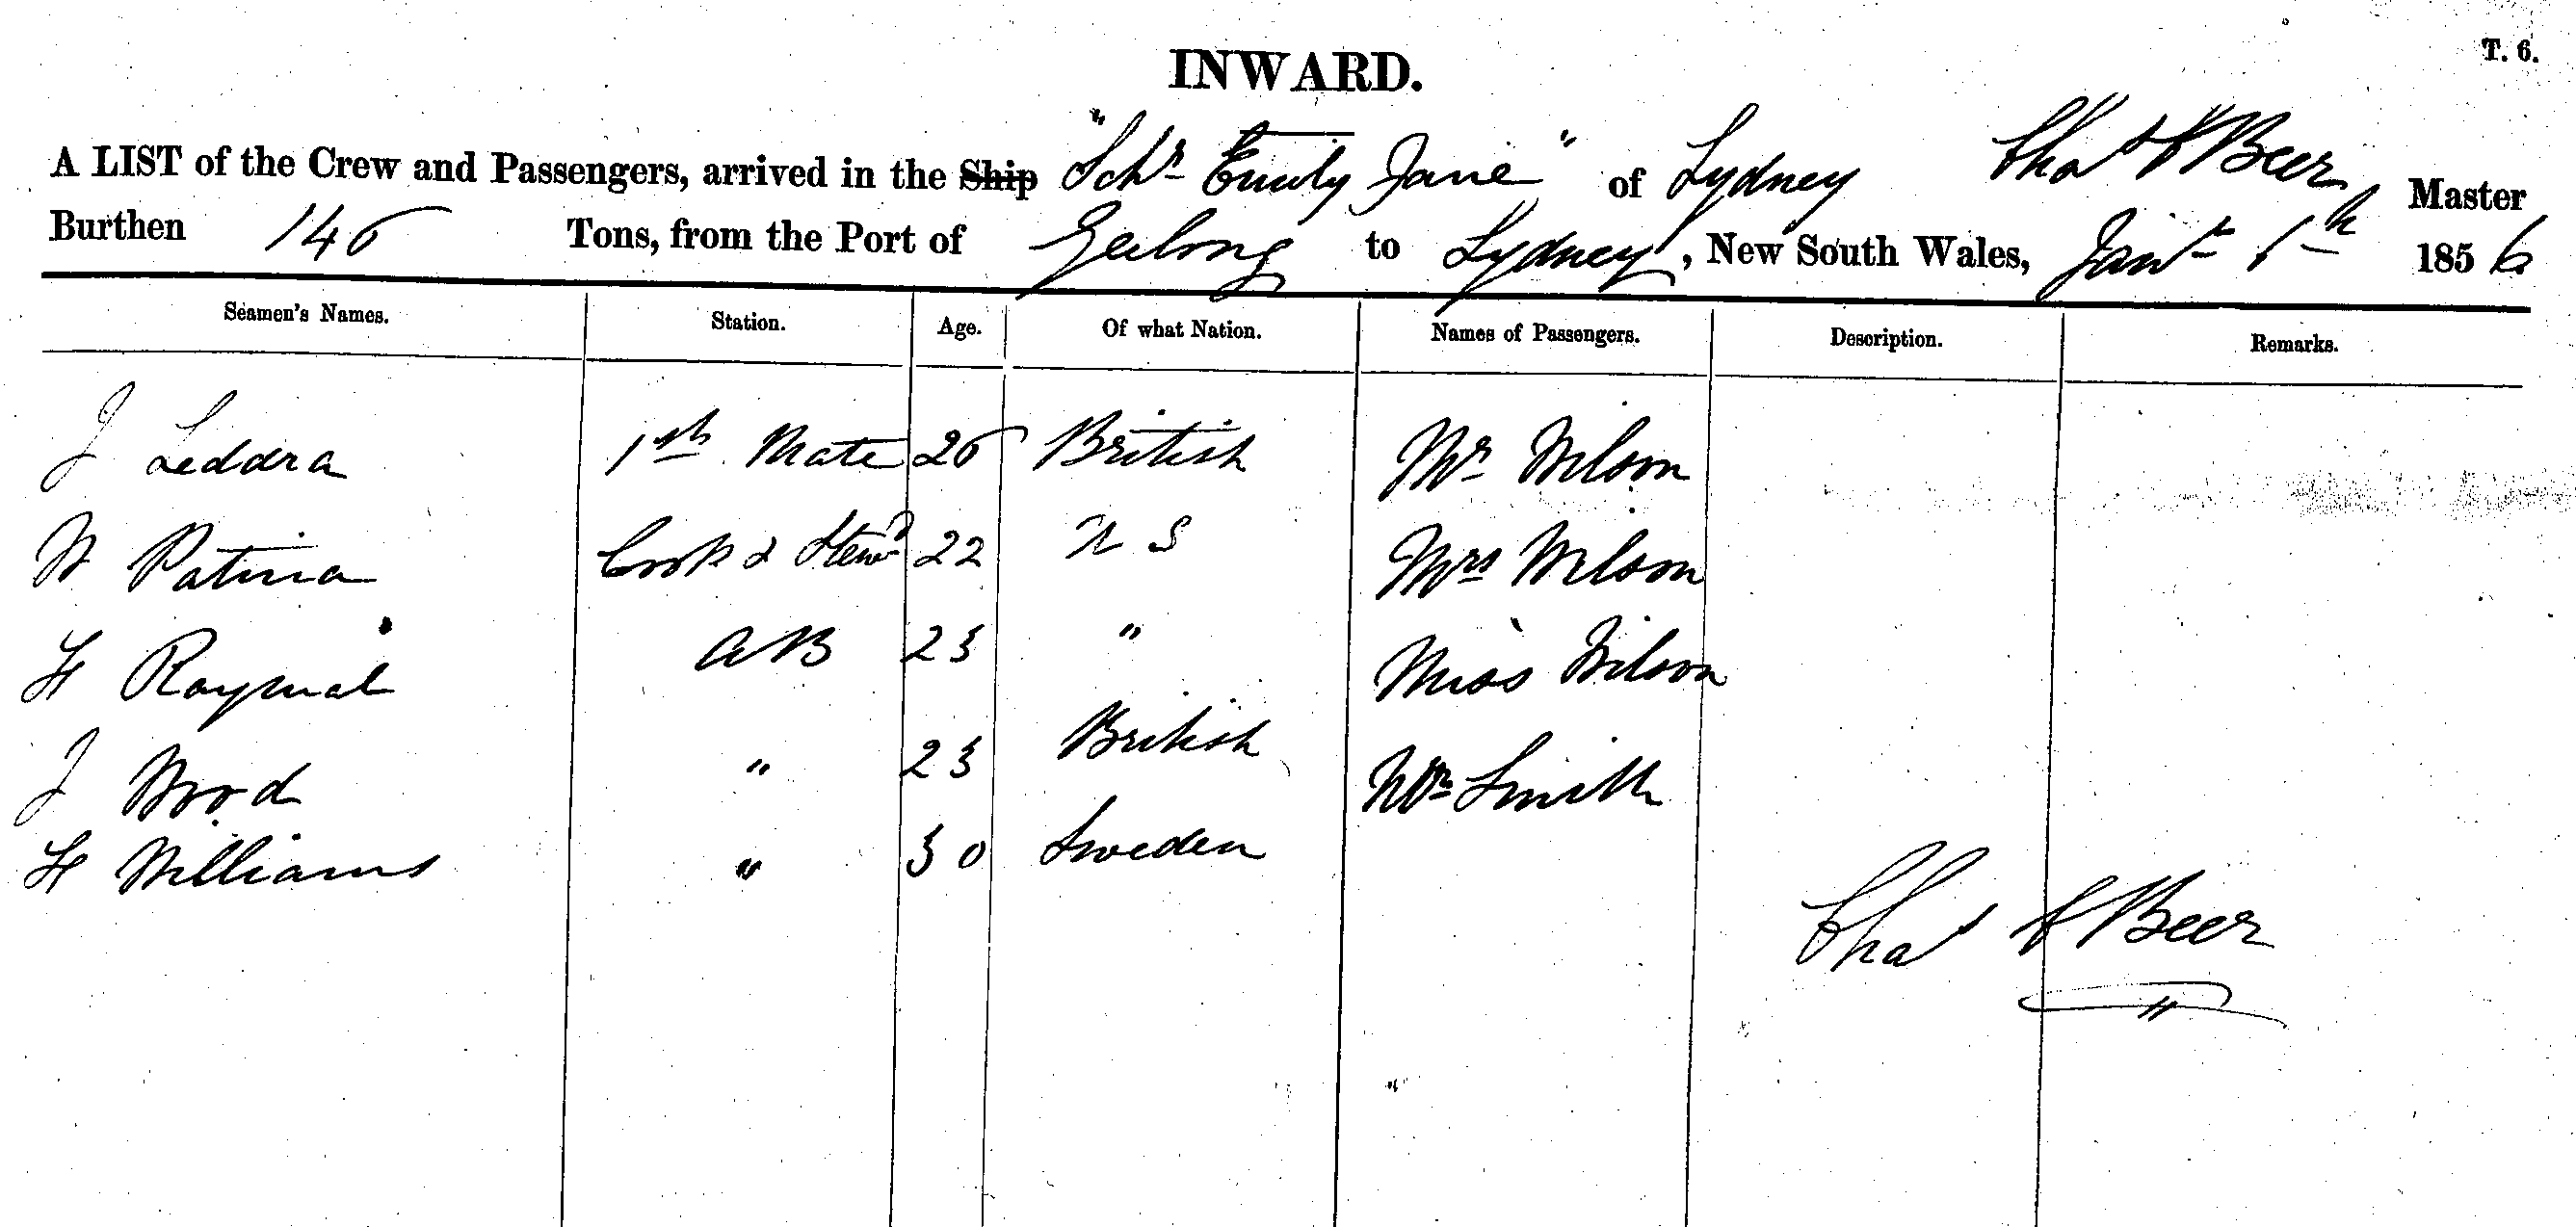 T. 6.
INWARD.
A LIST of the Crew and Passengers, arrived in the Ship "Schr Emily Jane" of Sydney Chas Beer Master
Burthen 146 Tons, from the Port of Geelong to Sydney, New South Wales, Jany 1856
Seamen's Names. Station. Age. Of what Nation. Names of Passengers. Description. Remarks.
J Leddra 1st Mate 26 British Mr Wilson
W Patina Cook & Stewd 22 U S Mrs Wilson
H Raymal AB 23 " Miss Wilson
J Wood " 23 British Wm Smith
H Williams " 30 Sweden
Chas Beer